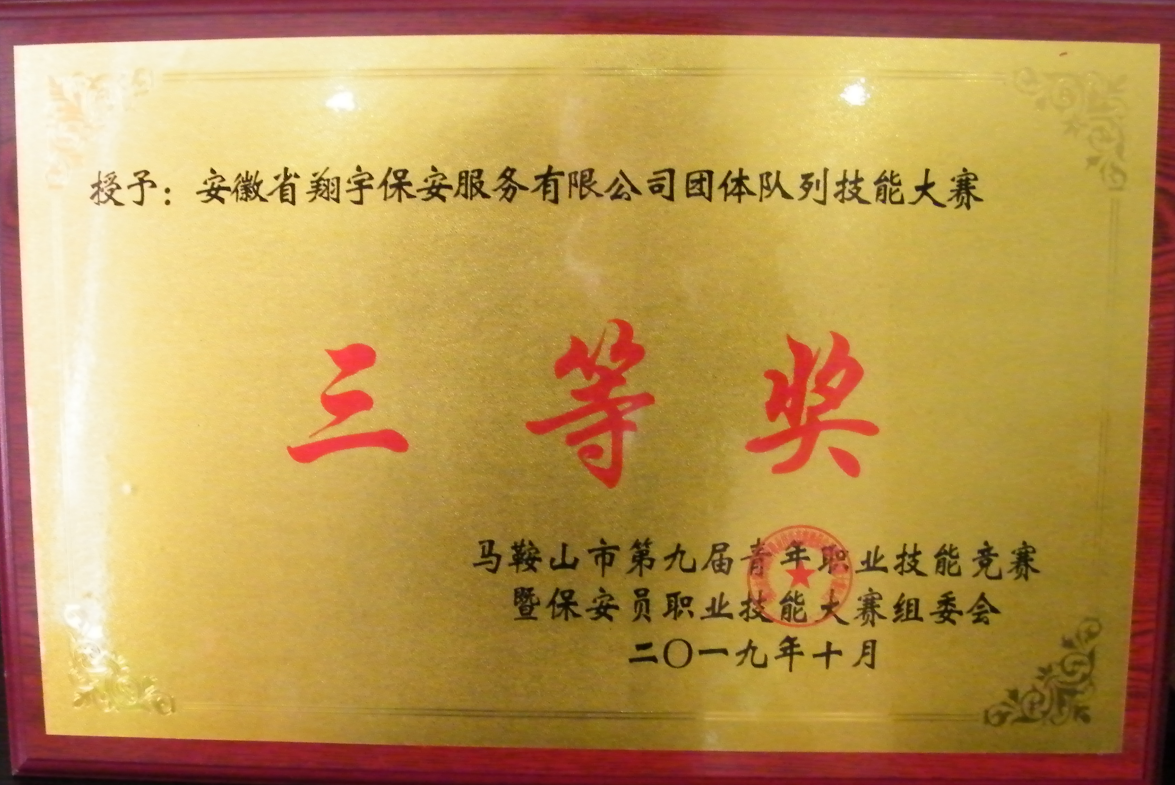 授予：安徽省翔宇保安服务有限公司团体队列技能大赛
三等奖
马鞍山市第九届青年职业技能竞赛
暨保安员职业技能大赛组委会
二〇一九年十月